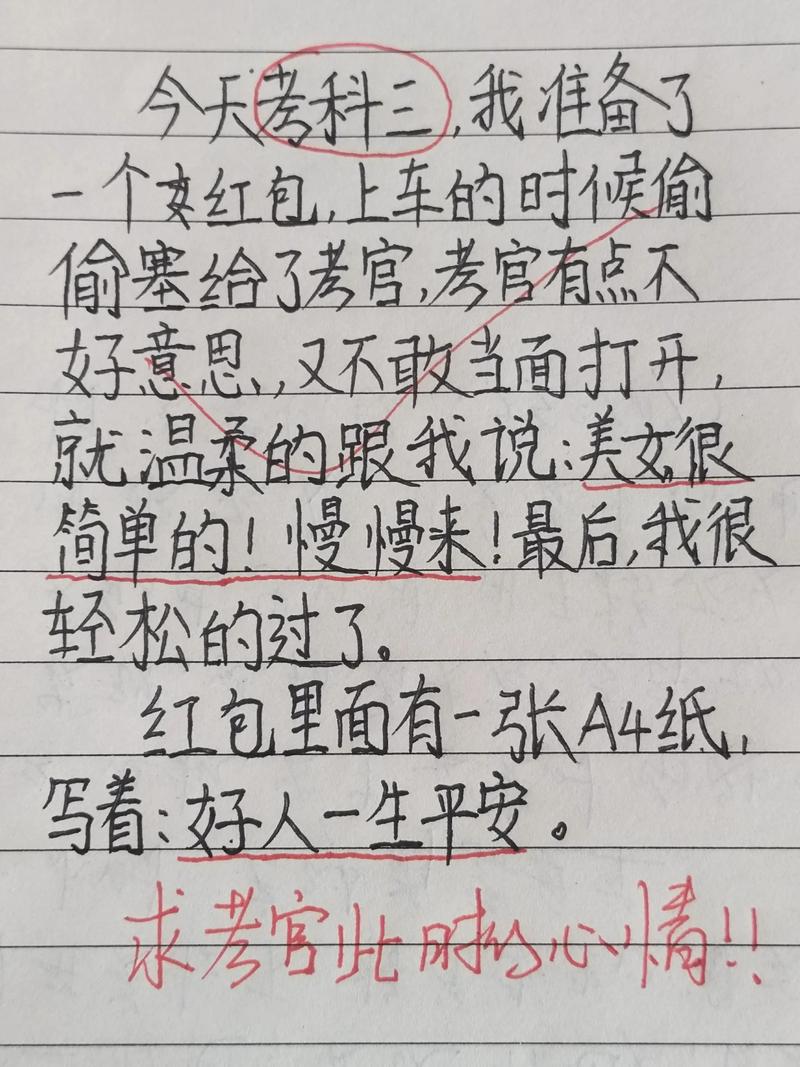 今天考科三,我准备了
一个红包,上车的时候偷
偷塞给了考官,考官有点不
好意思,,又不敢当面打开,
就温柔的跟我说:美女很
简单的!慢慢来!最后,我很
轻松的过了。
红包里面有一张A4纸,
写着:好人一生平安。
求考官此时的心情!!